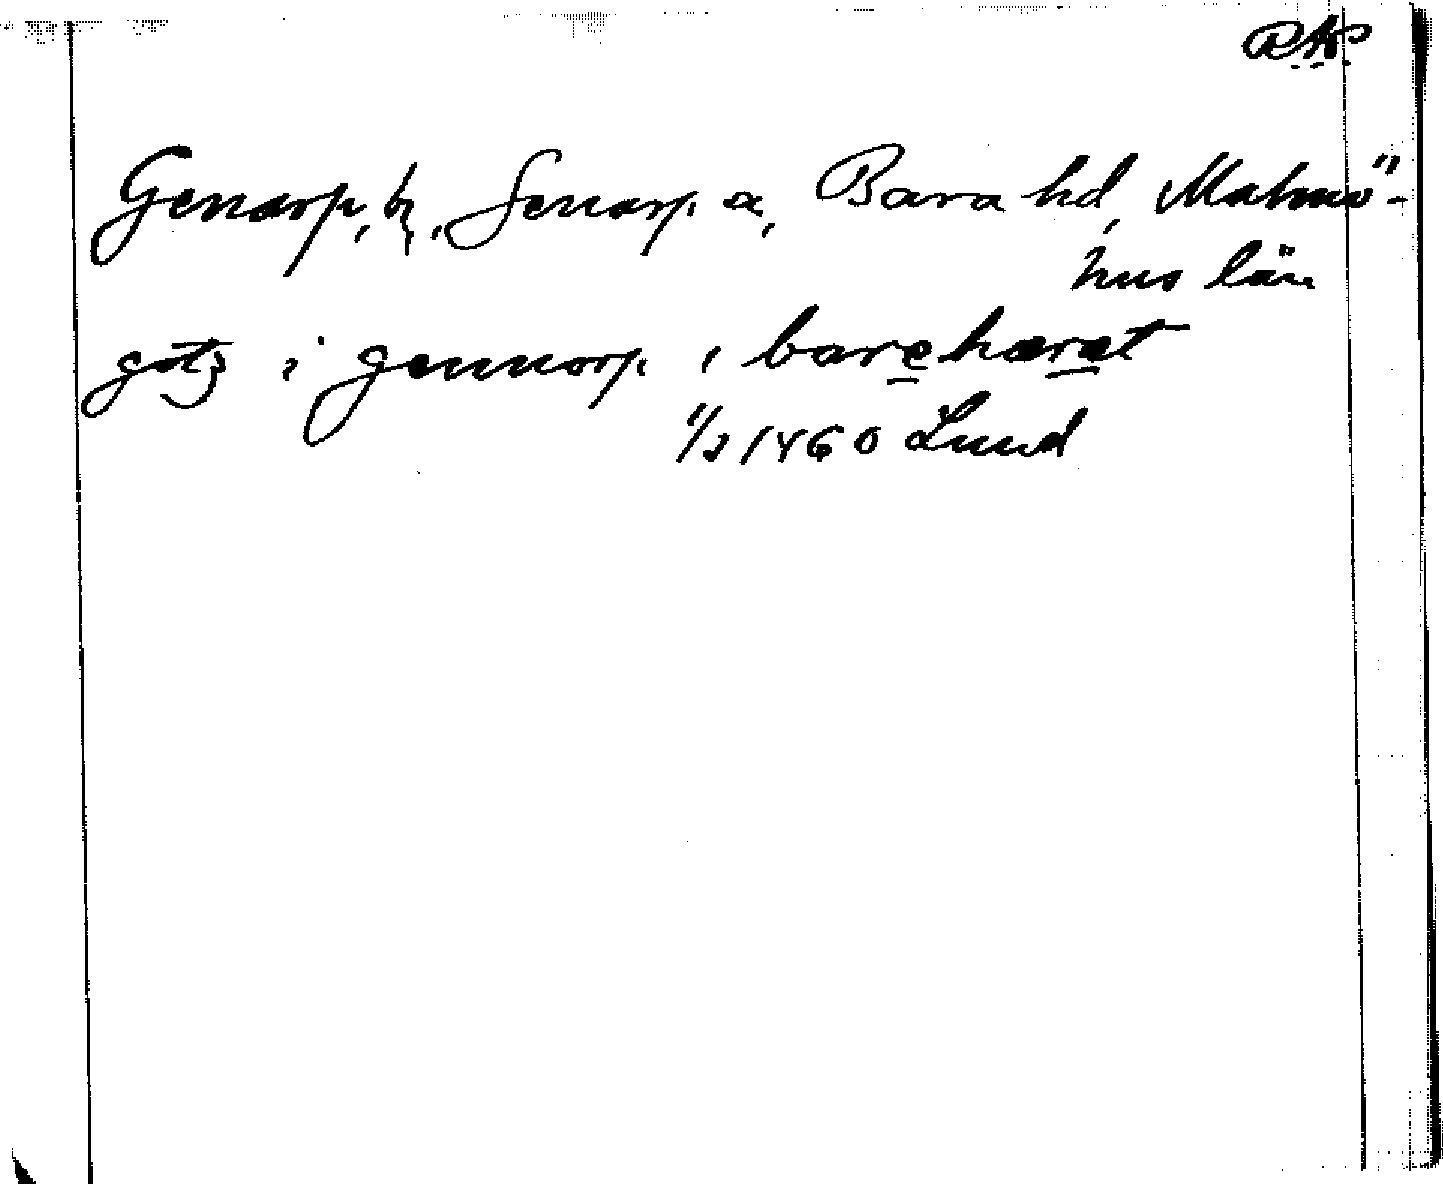 RAP
Genarp, by, Genarp s, Bara hd, Malmö-
hus län
gotz i gennorp i barehæret
1/2 1460 Lund